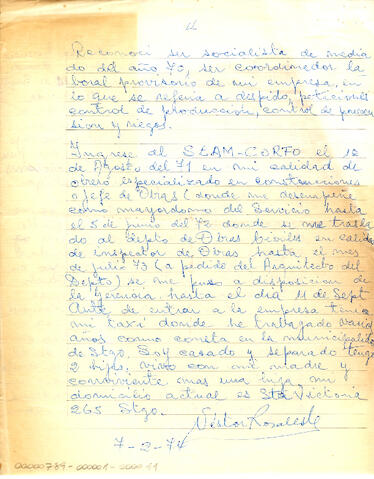 11
Reconoci ser socialista de media
do del año 70, ser coordinador la
boral provisorio de mi empresa, en
lo que se referia a despido, peticiones
control de producción, control de
sion y riegos.
Ingrese al SEAM-CORFO el 12
de Agosto del 71 en mi calidad de
obrero especializado en construcciones
o Jefe de Obras (donde me desempeñe
como mayordomo del Servicio hasta
el 5 de junio del 72 donde se me trasla
do al Depto de Obras Civiles en calidad
de inspector de Obras hasta el mes
de julio 73 (a pedido del Arquitecto del
Depto) se me puso a disposicion de
la Gerencia hasta el dia 11 de Sept
Ante de entrar a la empresa tenia
mi taxi donde he trabajado varios
años como en la municipalidad
de Stgo. Soy casado y separado tengo
2 hijos, vivo con mi madre y
conviviente mas una hija, mi
domicilio actual es Sta Victoria
265 Stgo.
Néstor
7-2-74
00000789-000001-000011